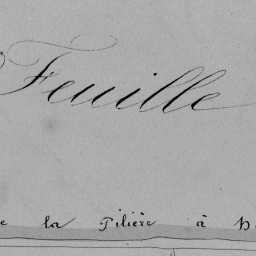 Feuille
la Pilière à